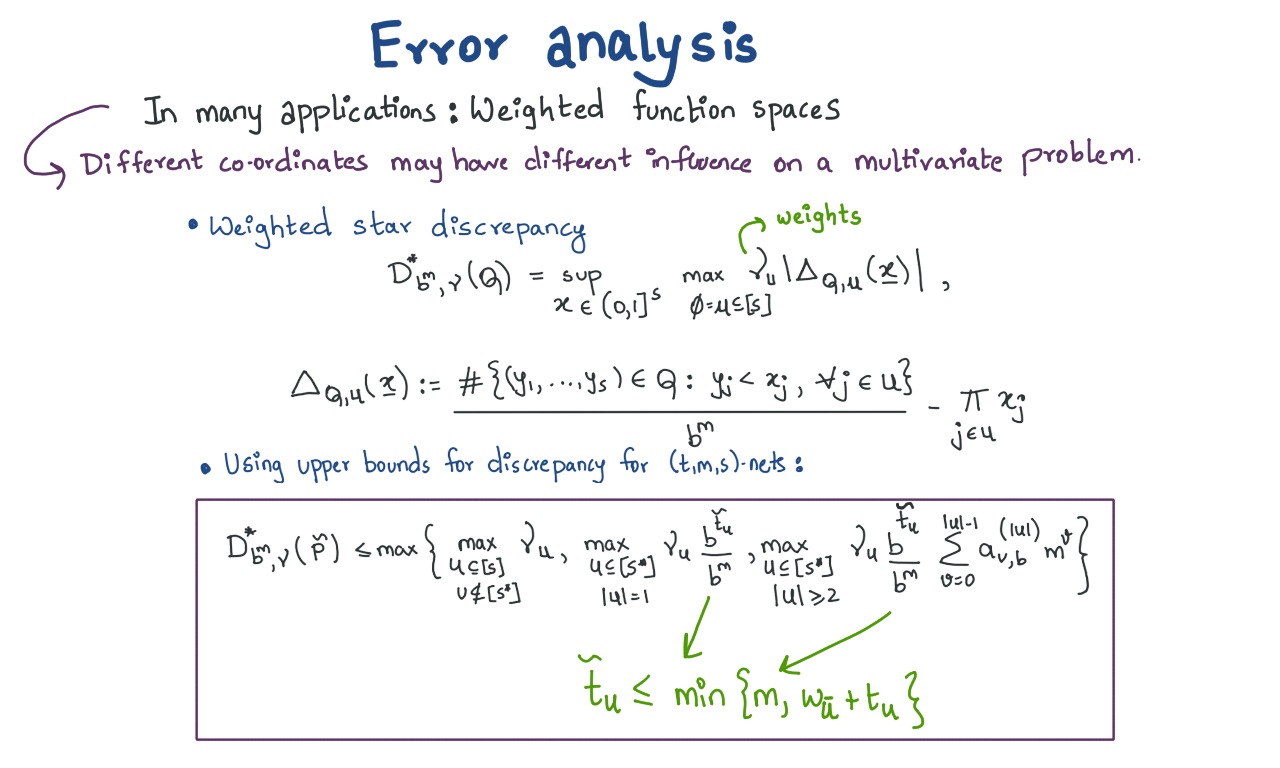 Error analysis
In many applications : Weighted function spaces
Different co-ordinates may have different influence on a multivariate problem.
weights
• Weighted star discrepancy
D*_{b^m, γ}(Q) = sup_{x ∈ (0,1]^s} max_{∅=u⊆[s]} γ_u |Δ_{Q,u}(x)| ,
Δ_{Q,u}(x) := #{(y_1, ..., y_s) ∈ Q : y_j < x_j , ∀j ∈ u} / b^m - ∏_{j∈u} x_j
• Using upper bounds for discrepancy for (t,m,s)-nets :
D*_{b^m, γ}(p̆) ≤ max { max_{u⊆[s] u⊈[s*]} γ_u, max_{u⊆[s*] |u|=1} γ_u b^{t̆_u} / b^m , max_{u⊆[s*] |u|≥2} γ_u b^{t̆_u} / b^m ∑_{v=0}^{|u|-1} a_{v,b}^{(|u|)} m^v }
t̆_u ≤ min {m, w_ū + t_u }